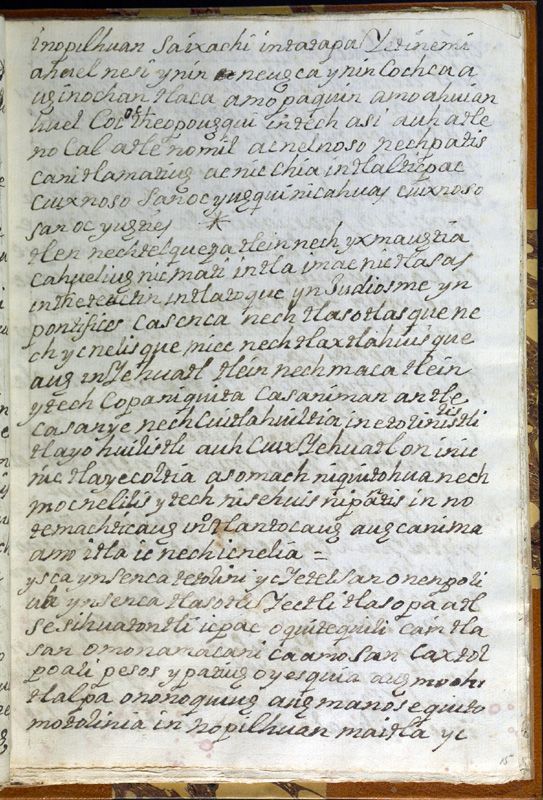 inopilhuan Saixachi intatapa Yetinemi
ahuel nesi ynin neuqca ynin Cochca a
uq inochan tlaca amo paquin amo ahuian
huel Coc theopouqqui intech asi auh atle
no Cal atle nomil acnelnoso nechpatis
canitlamatiuq ac nicchia intlalticpac
Cuixnoso Sanoc yuqqui nicahuas cuixnoso
san oc yuqyes *
tlen nechtelquetza tlein nech yxmauqtia
cahueliuq nicmati intla imac nictlasas
intheteuctin intlatoque yn Judiosme yn
pontifices Casenca nech tlasotlasque ne
ch ycnelisque miec nech tlaxtlahuisque
auq in Yehuatl tlein nechmaca tlein
ytech Copaniquita Casaniman atle
casanye nech Cuitlahuiltia inetolinistli
tlayohuilistli auh Cuix Yehuatl on inic
nictlayecoltia asomach niquitohua nech
mocnelilis ytech nisehuis nipatis in no
temachticauq intlantocauq auq canima
amo itla ic nechicnelia =
ysca ynsenca tetolini yc Yetelsan onenpoli
uh ynsenca tlasotli Yectli tlasopaatl
se sihuatontli icpac oquitequili camtla
san omonamacani caamo san Caxtol
poali pesos ypatiuq oyesquia auq mochi
tlalpa ononoquiuq auq manosequito
motolinia in nopilhuan maitla yc
15